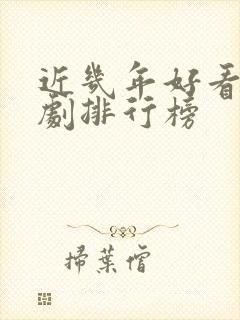 近幾年好看
劇排行榜
掃葉僧